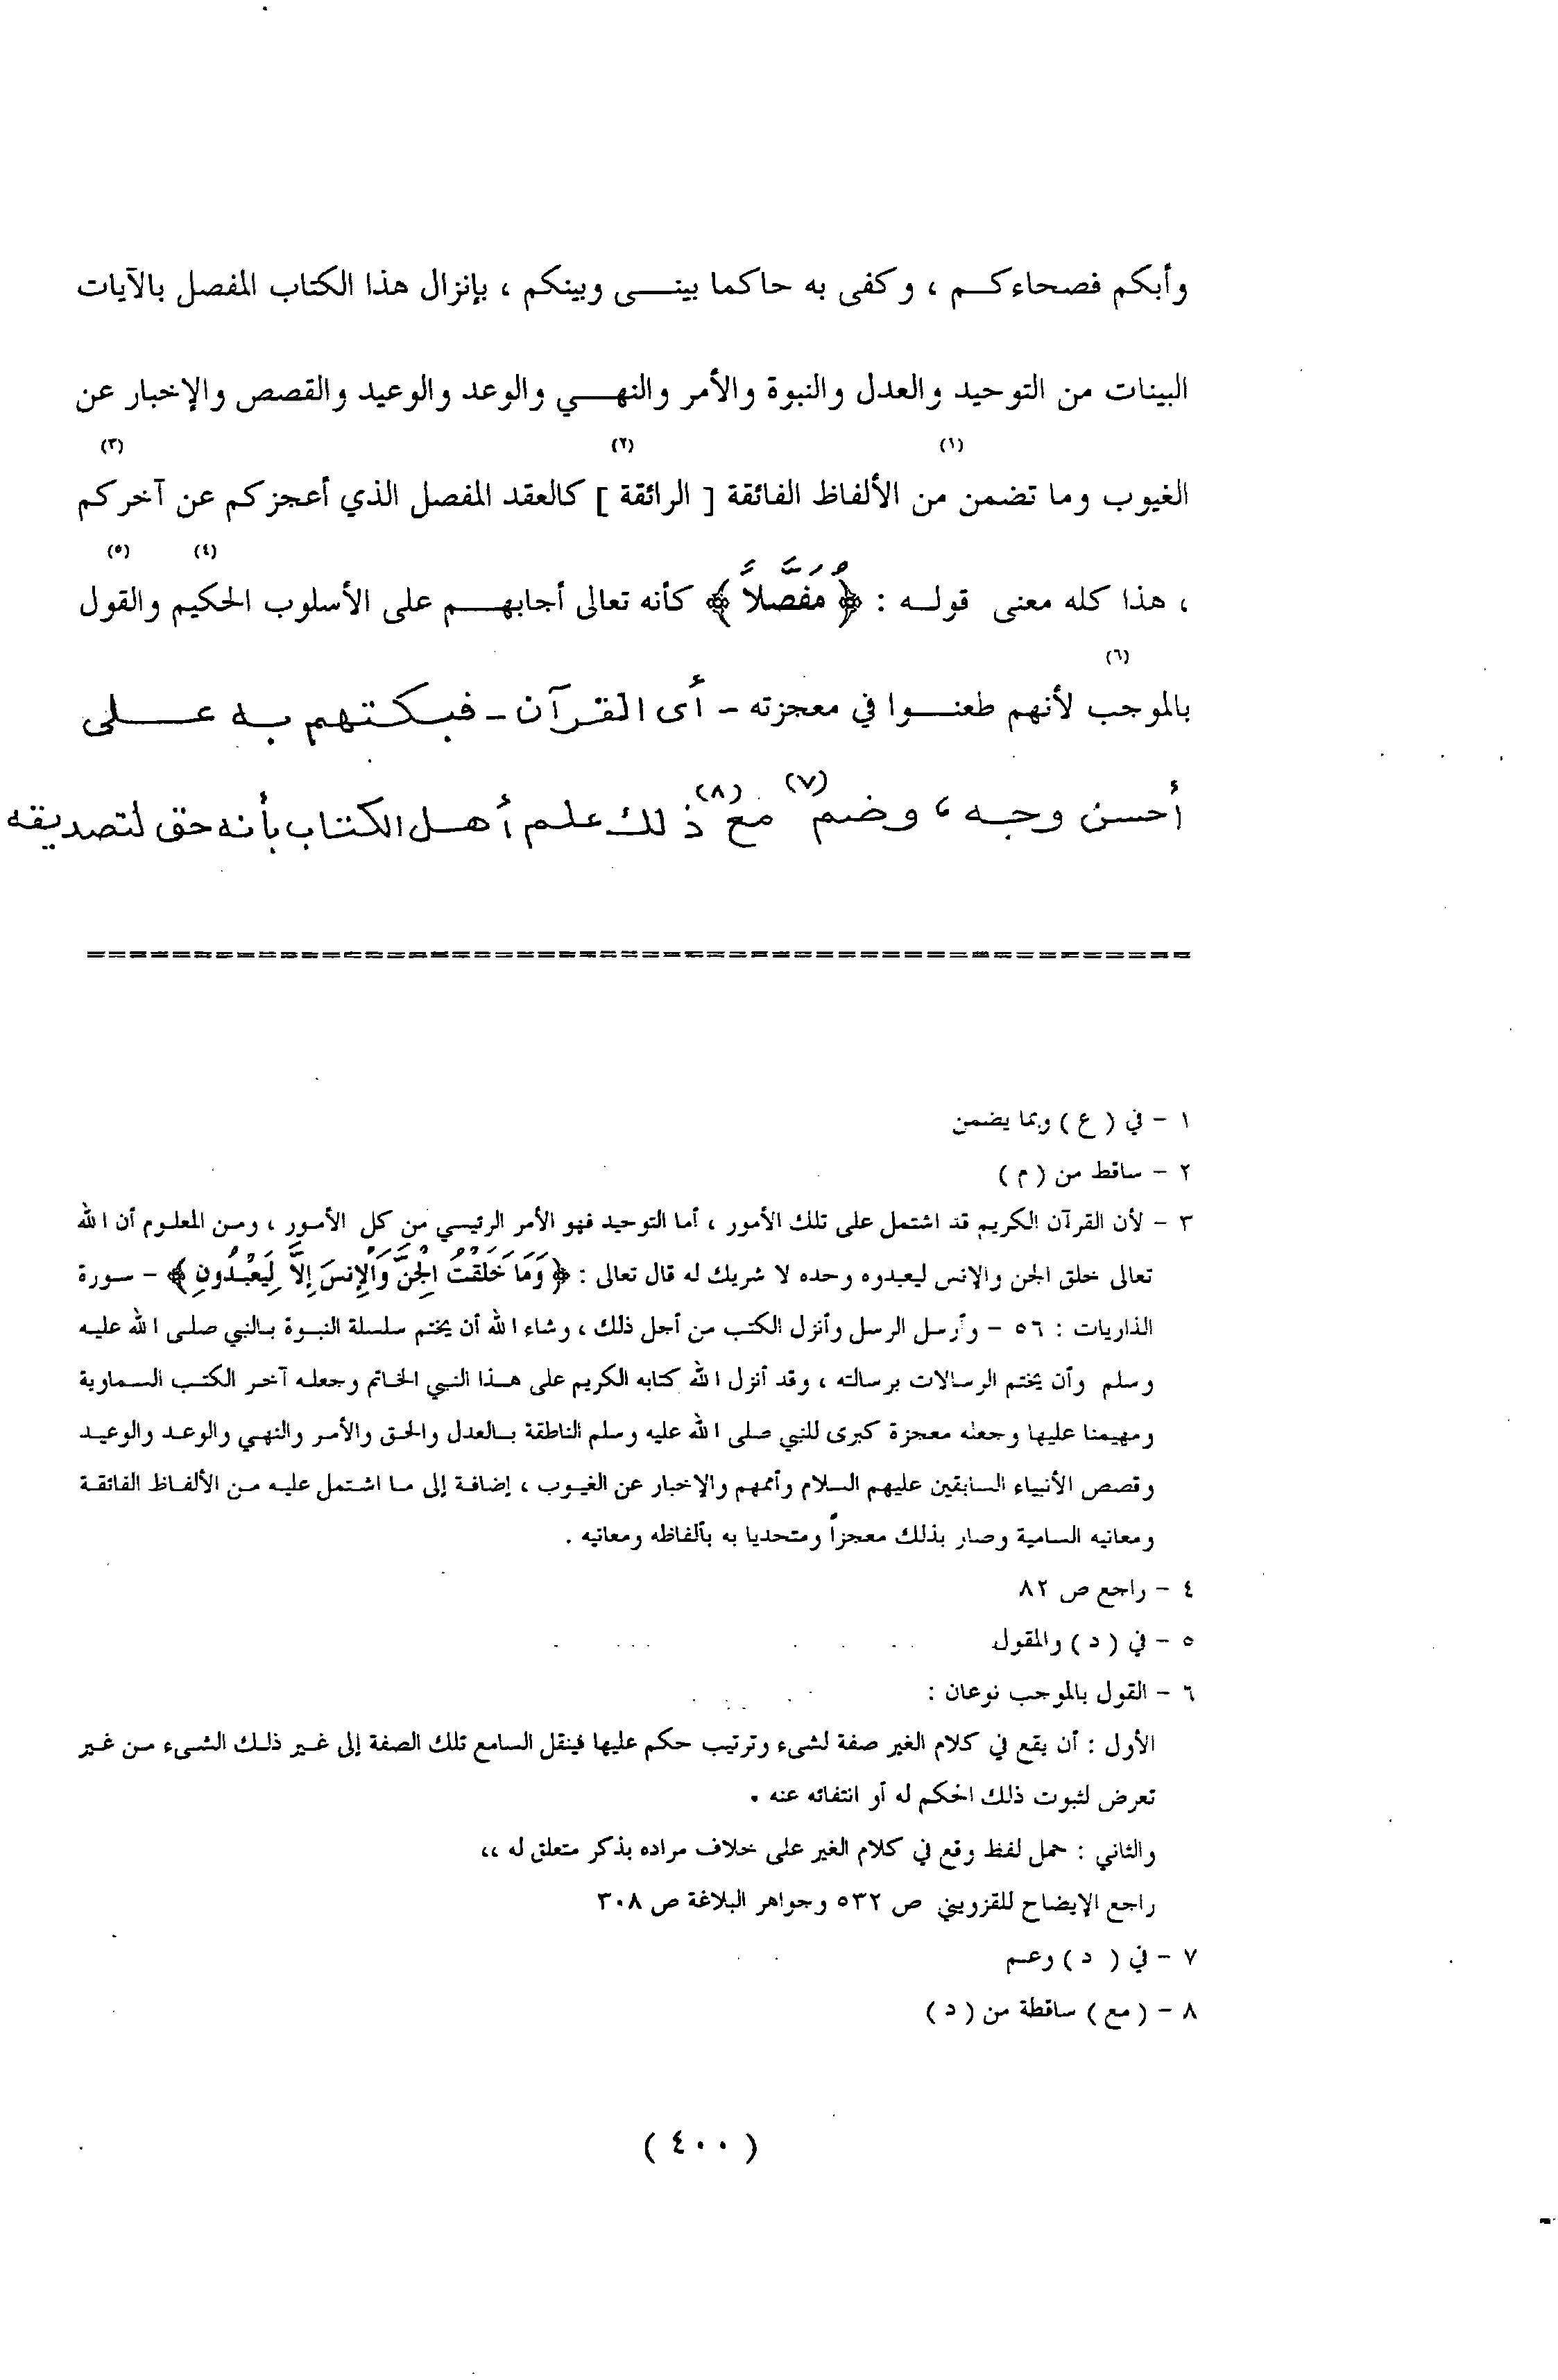 وأبكم فصحاءكـــم ، وكفى به حاكما بينـــى وبينكم ، بإنزال هذا الكتاب المفصل بالآيات
البينات من التوحيد والعدل والنبوة والأمر والنهـــي والوعد والوعيد والقصص والإخبار عن
(١) (٢) (٣)
الغيوب وما تضمن من الألفاظ الفائقة [ الرائقة ] كالعقد المفصل الذي أعجزكم عن آخركم
(٤) (٥)
، هذا كله معنى قولـــه : ﴿ مُفَصَّلاً ﴾ كأنه تعالى أجابهـــم على الأسلوب الحكيم والقول
(٦)
بالموجب لأنهم طعنـــوا في معجزته – أى القرآن – فبكتهم به علـــى
أحسن وجه ، وضم (٧) مع (٨) ذلك علم أهل الكتاب بأنه حق لتصديقه
====================================================
١ – في ( ع ) وبما يضمن
٢ – ساقط من ( م )
٣ – لأن القرآن الكريم قد اشتمل على تلك الأمور ، أما التوحيد فهو الأمر الرئيسي من كل الأمور ، ومن المعلوم أن الله
تعالى خلق الجن والإنس ليعبدوه وحده لا شريك له قال تعالى : ﴿ وَمَا خَلَقْتُ الْجِنَّ وَالْإِنسَ إِلاَّ لِيَعْبُدُونِ ﴾ – سورة
الذاريات : ٥٦ – وأرسل الرسل وأنزل الكتب من أجل ذلك ، وشاء الله أن يختم سلسلة النبوة بالنبي صلى الله عليه
وسلم وأن يختم الرسالات برسالته ، وقد أنزل الله كتابه الكريم على هذا النبي الخاتم وجعله آخر الكتب السماوية
ومهيمنا عليها وجعله معجزة كبرى للنبي صلى الله عليه وسلم الناطقة بالعدل والحق والأمر والنهي والوعد والوعيد
وقصص الأنبياء السابقين عليهم السلام وأممهم والإخبار عن الغيوب ، إضافة إلى ما اشتمل عليه من الألفاظ الفائقة
ومعانيه السامية وصار بذلك معجزاً ومتحديا به بألفاظه ومعانيه .
٤ – راجع ص ٨٢
٥ – في ( د ) والمقول
٦ – القول بالموجب نوعان :
الأول : أن يقع في كلام الغير صفة لشىء وترتيب حكم عليها فينقل السامع تلك الصفة إلى غير ذلك الشىء من غير
تعرض لثبوت ذلك الحكم له أو انتفائه عنه .
والثاني : حمل لفظ وقع في كلام الغير على خلاف مراده بذكر متعلق له ،،
راجع الإيضاح للقزويني ص ٥٣٢ وجواهر البلاغة ص ٣٠٨
٧ – في ( د ) وعم
٨ – ( مع ) ساقطة من ( د )
( ٤٠٠ )